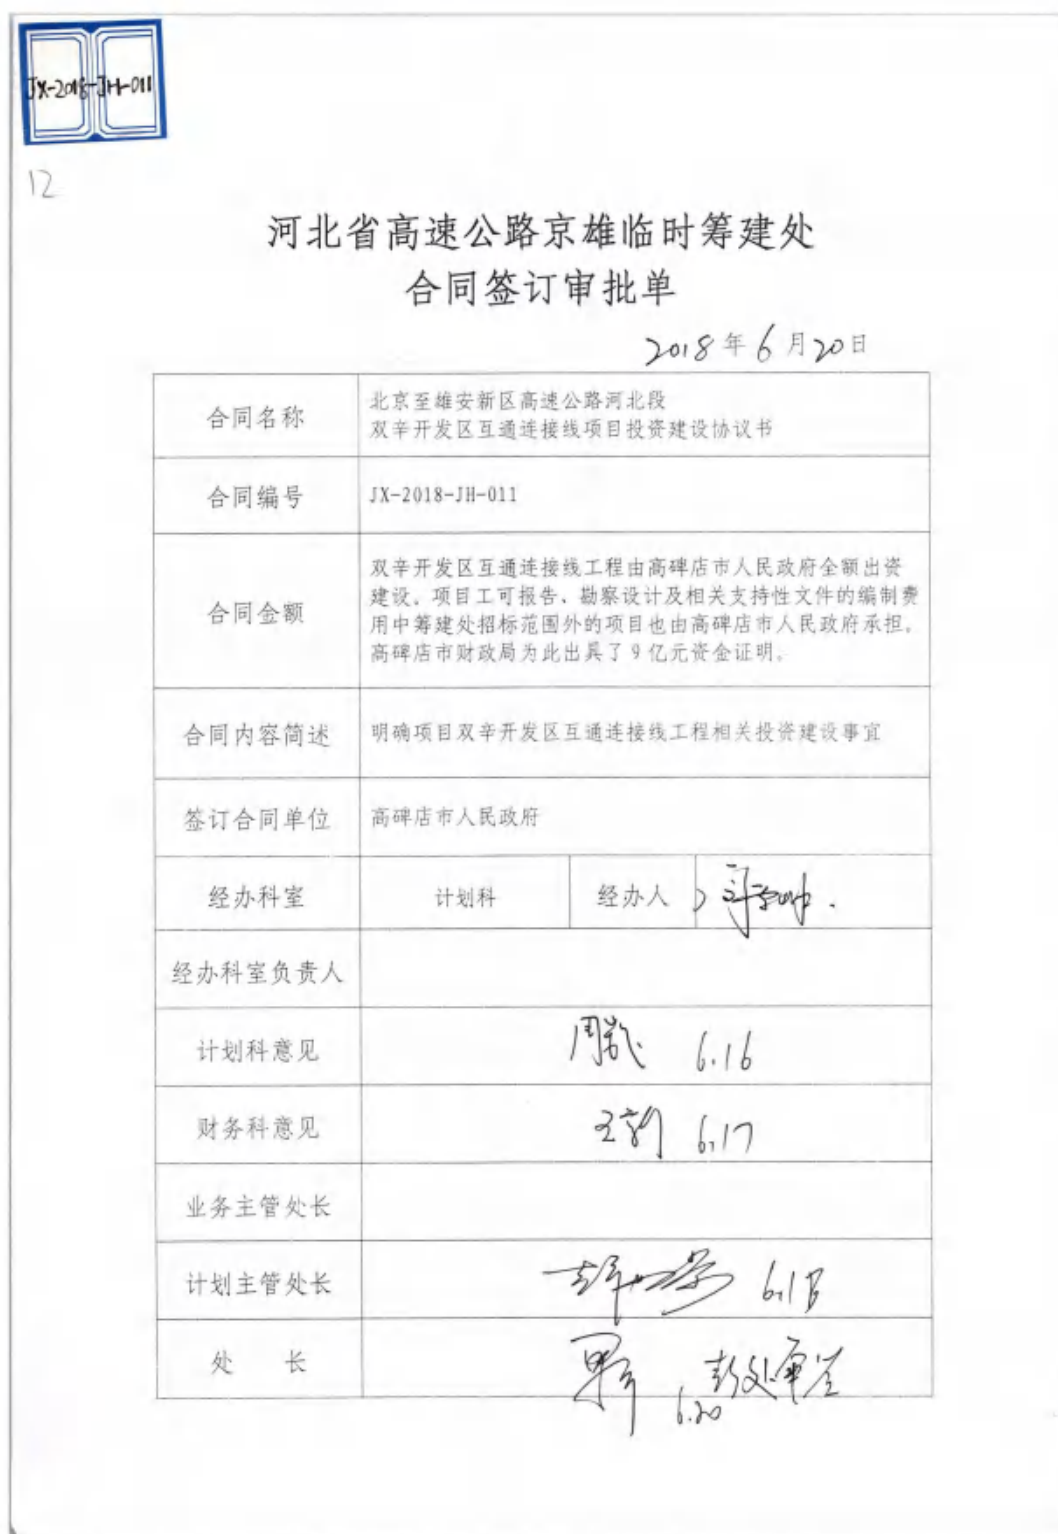 JX-2018-JH-011
12
河北省高速公路京雄临时筹建处
合同签订审批单
2018年6月20日
合同名称
北京至雄安新区高速公路河北段
双辛开发区互通连接线项目投资建设协议书
合同编号
JX-2018-JH-011
合同金额
双辛开发区互通连接线工程由高碑店市人民政府全额出资
建设。项目工可报告、勘察设计及相关支持性文件的编制费
用中筹建处招标范围外的项目也由高碑店市人民政府承担。
高碑店市财政局为此出具了9亿元资金证明。
合同内容简述
明确项目双辛开发区互通连接线工程相关投资建设事宜
签订合同单位
高碑店市人民政府
经办科室 计划科 经办人
经办科室负责人
计划科意见
周凯 6.16
财务科意见
6.17
业务主管处长
计划主管处长
6.18
处 长
6.20